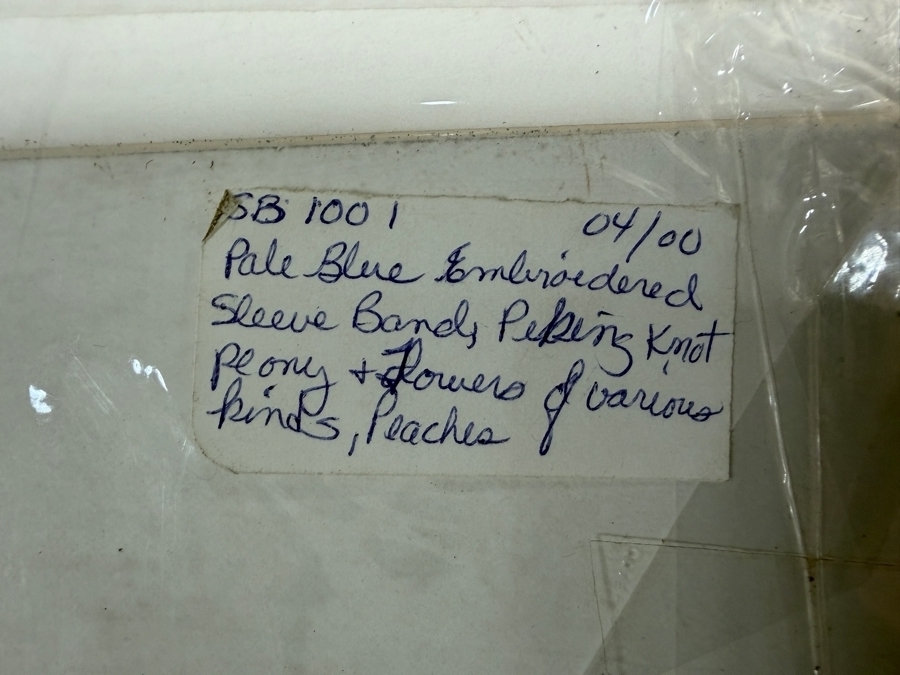 SB 1001 04/00
Pale Blue Embroidered
Sleeve Band, Peking Knot
Peony + Flowers of various
kinds, Peaches